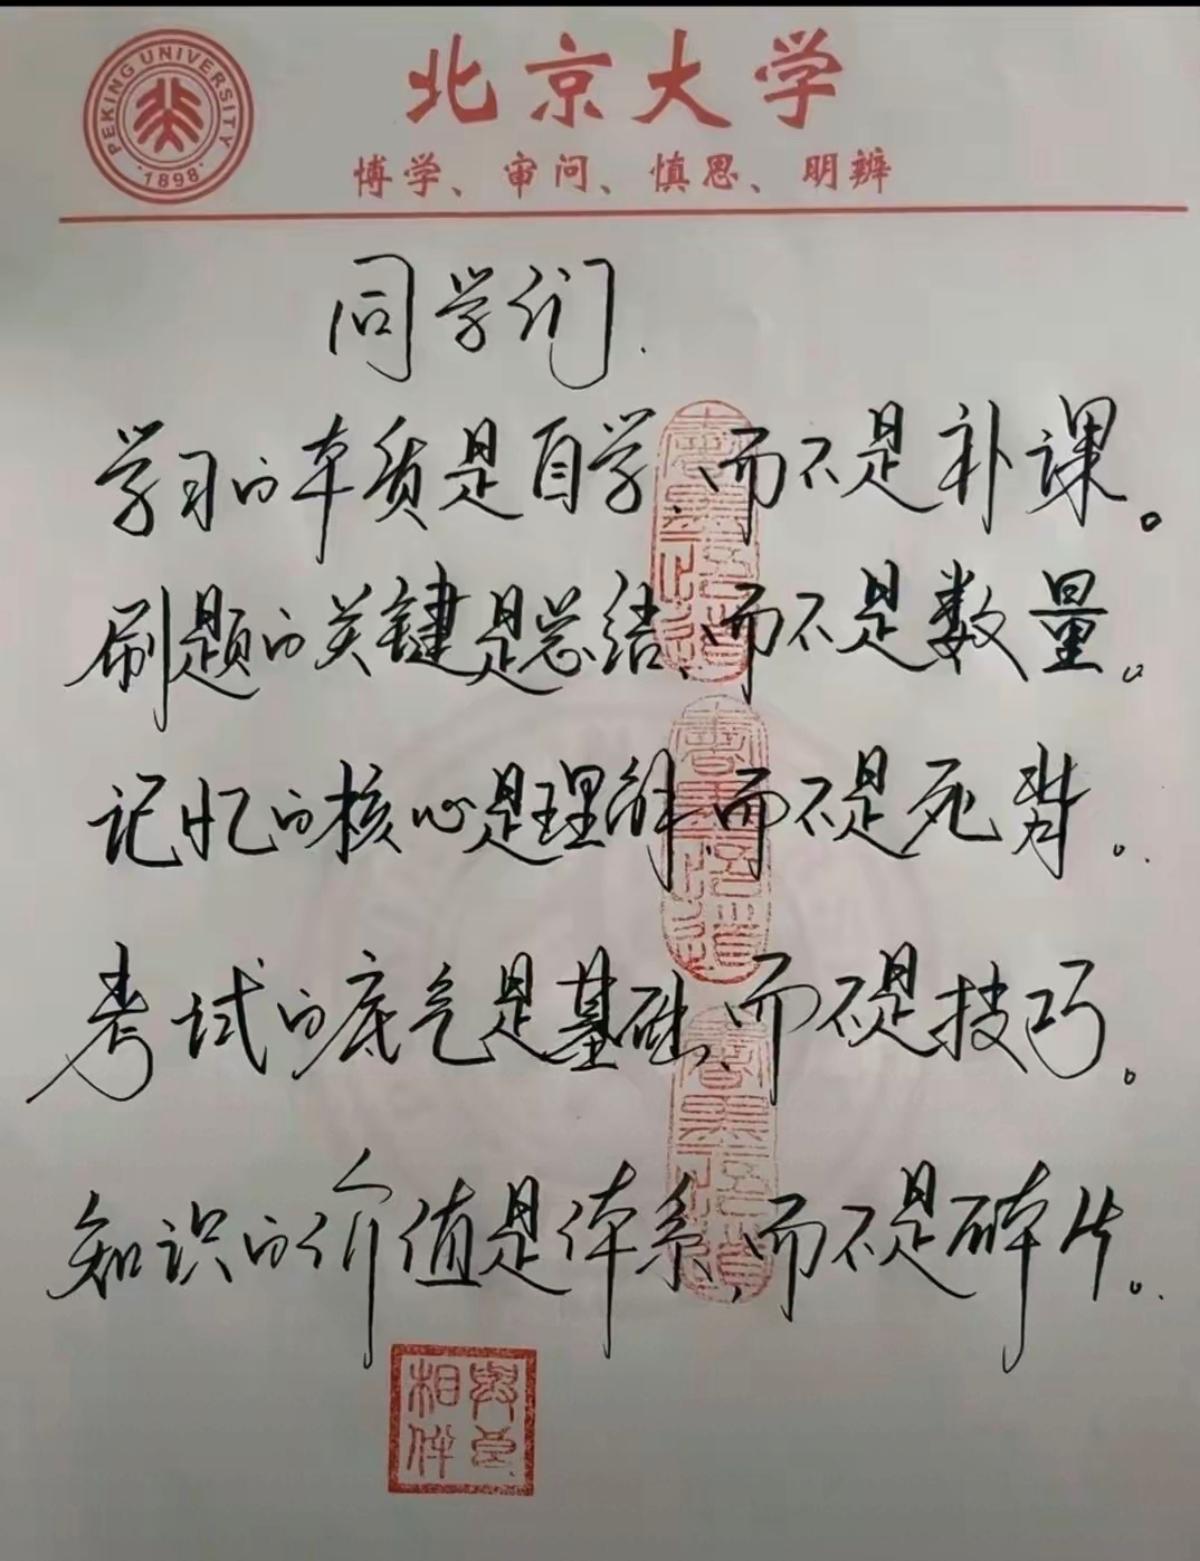 PEKING UNIVERSITY
1898
北京大学
博学、审问、慎思、明辨
同学们.
学习的本质是自学、而不是补课。
刷题的关键是总结、而不是数量。
记忆的核心是理解、而不是死背。
考试的底气是基础、而不是技巧。
知识的价值是体系、而不是碎片。
书墨悟道
书墨悟道
书墨悟道
相伴